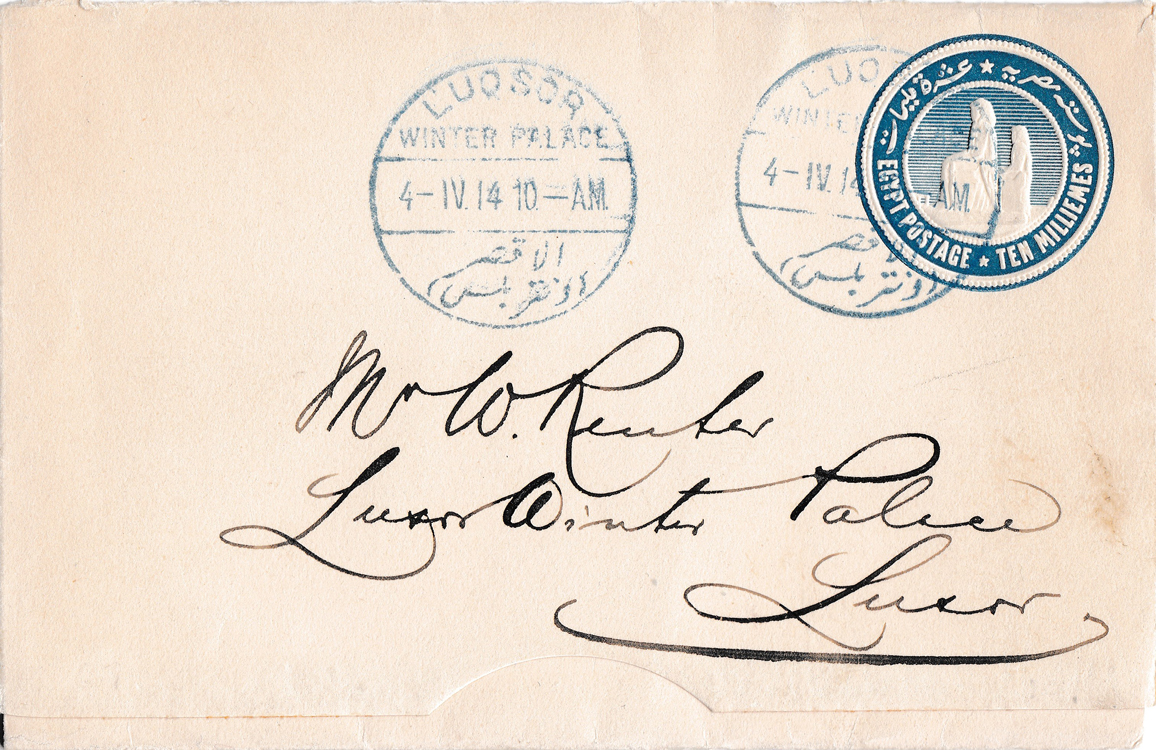 LUQSOR
WINTER PALACE
4-IV.14 10.-AM.
الاقصر
(ونتر بلس)
LUQ
WINTE
4-IV.14 -AM.
الاقصر
(ونتر بلس)
بوستة مصرية ★ عشرة مليمات
EGYPT POSTAGE ★ TEN MILLIEMES
Mr W. Reuter
Luxor Winter Palace
Luxor